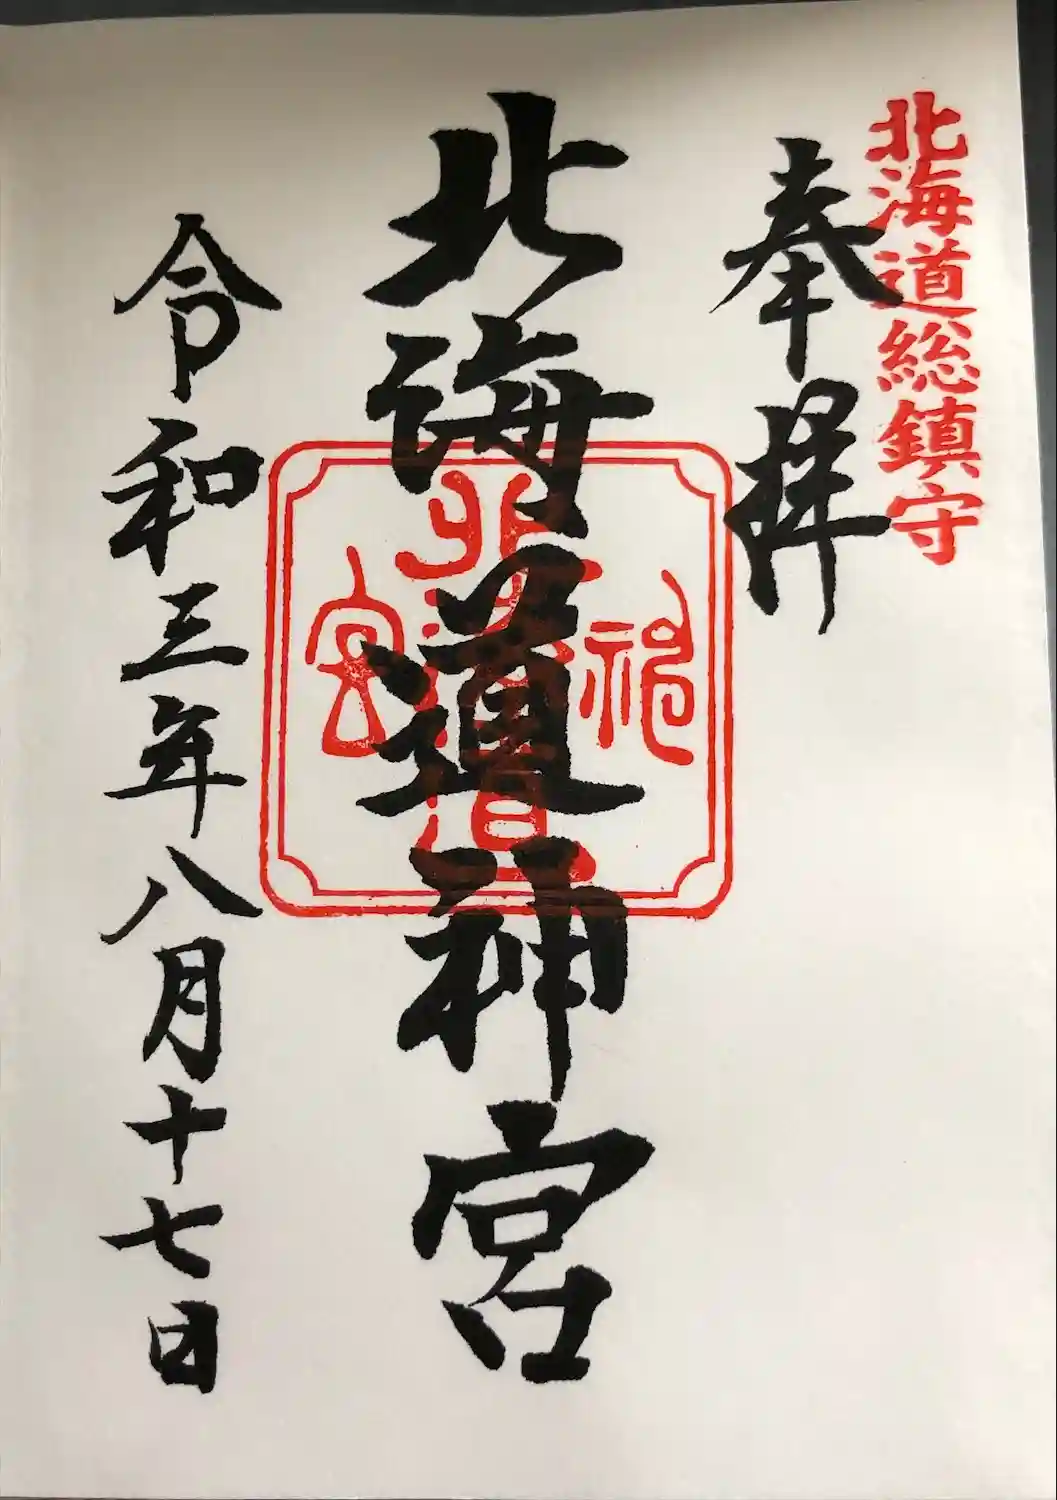 北海道総鎮守
奉拝
北海道神宮
北海道神宮
令和三年八月十七日